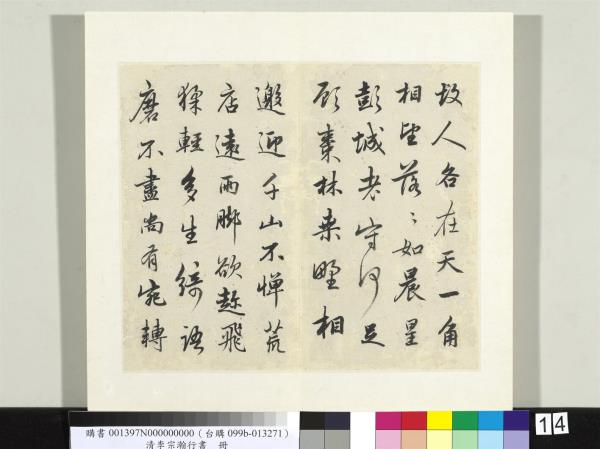 故人各在天一角
相望落々如晨星
彭城老守何足
顧棗林桑野相
邀迎千山不憚荒
店遠兩脚欲趁飛
猱輕多生綺語
磨不盡尚有宛轉
購書 001397N000000000 (台購 099b-013271)
清李宗瀚行書 冊
14